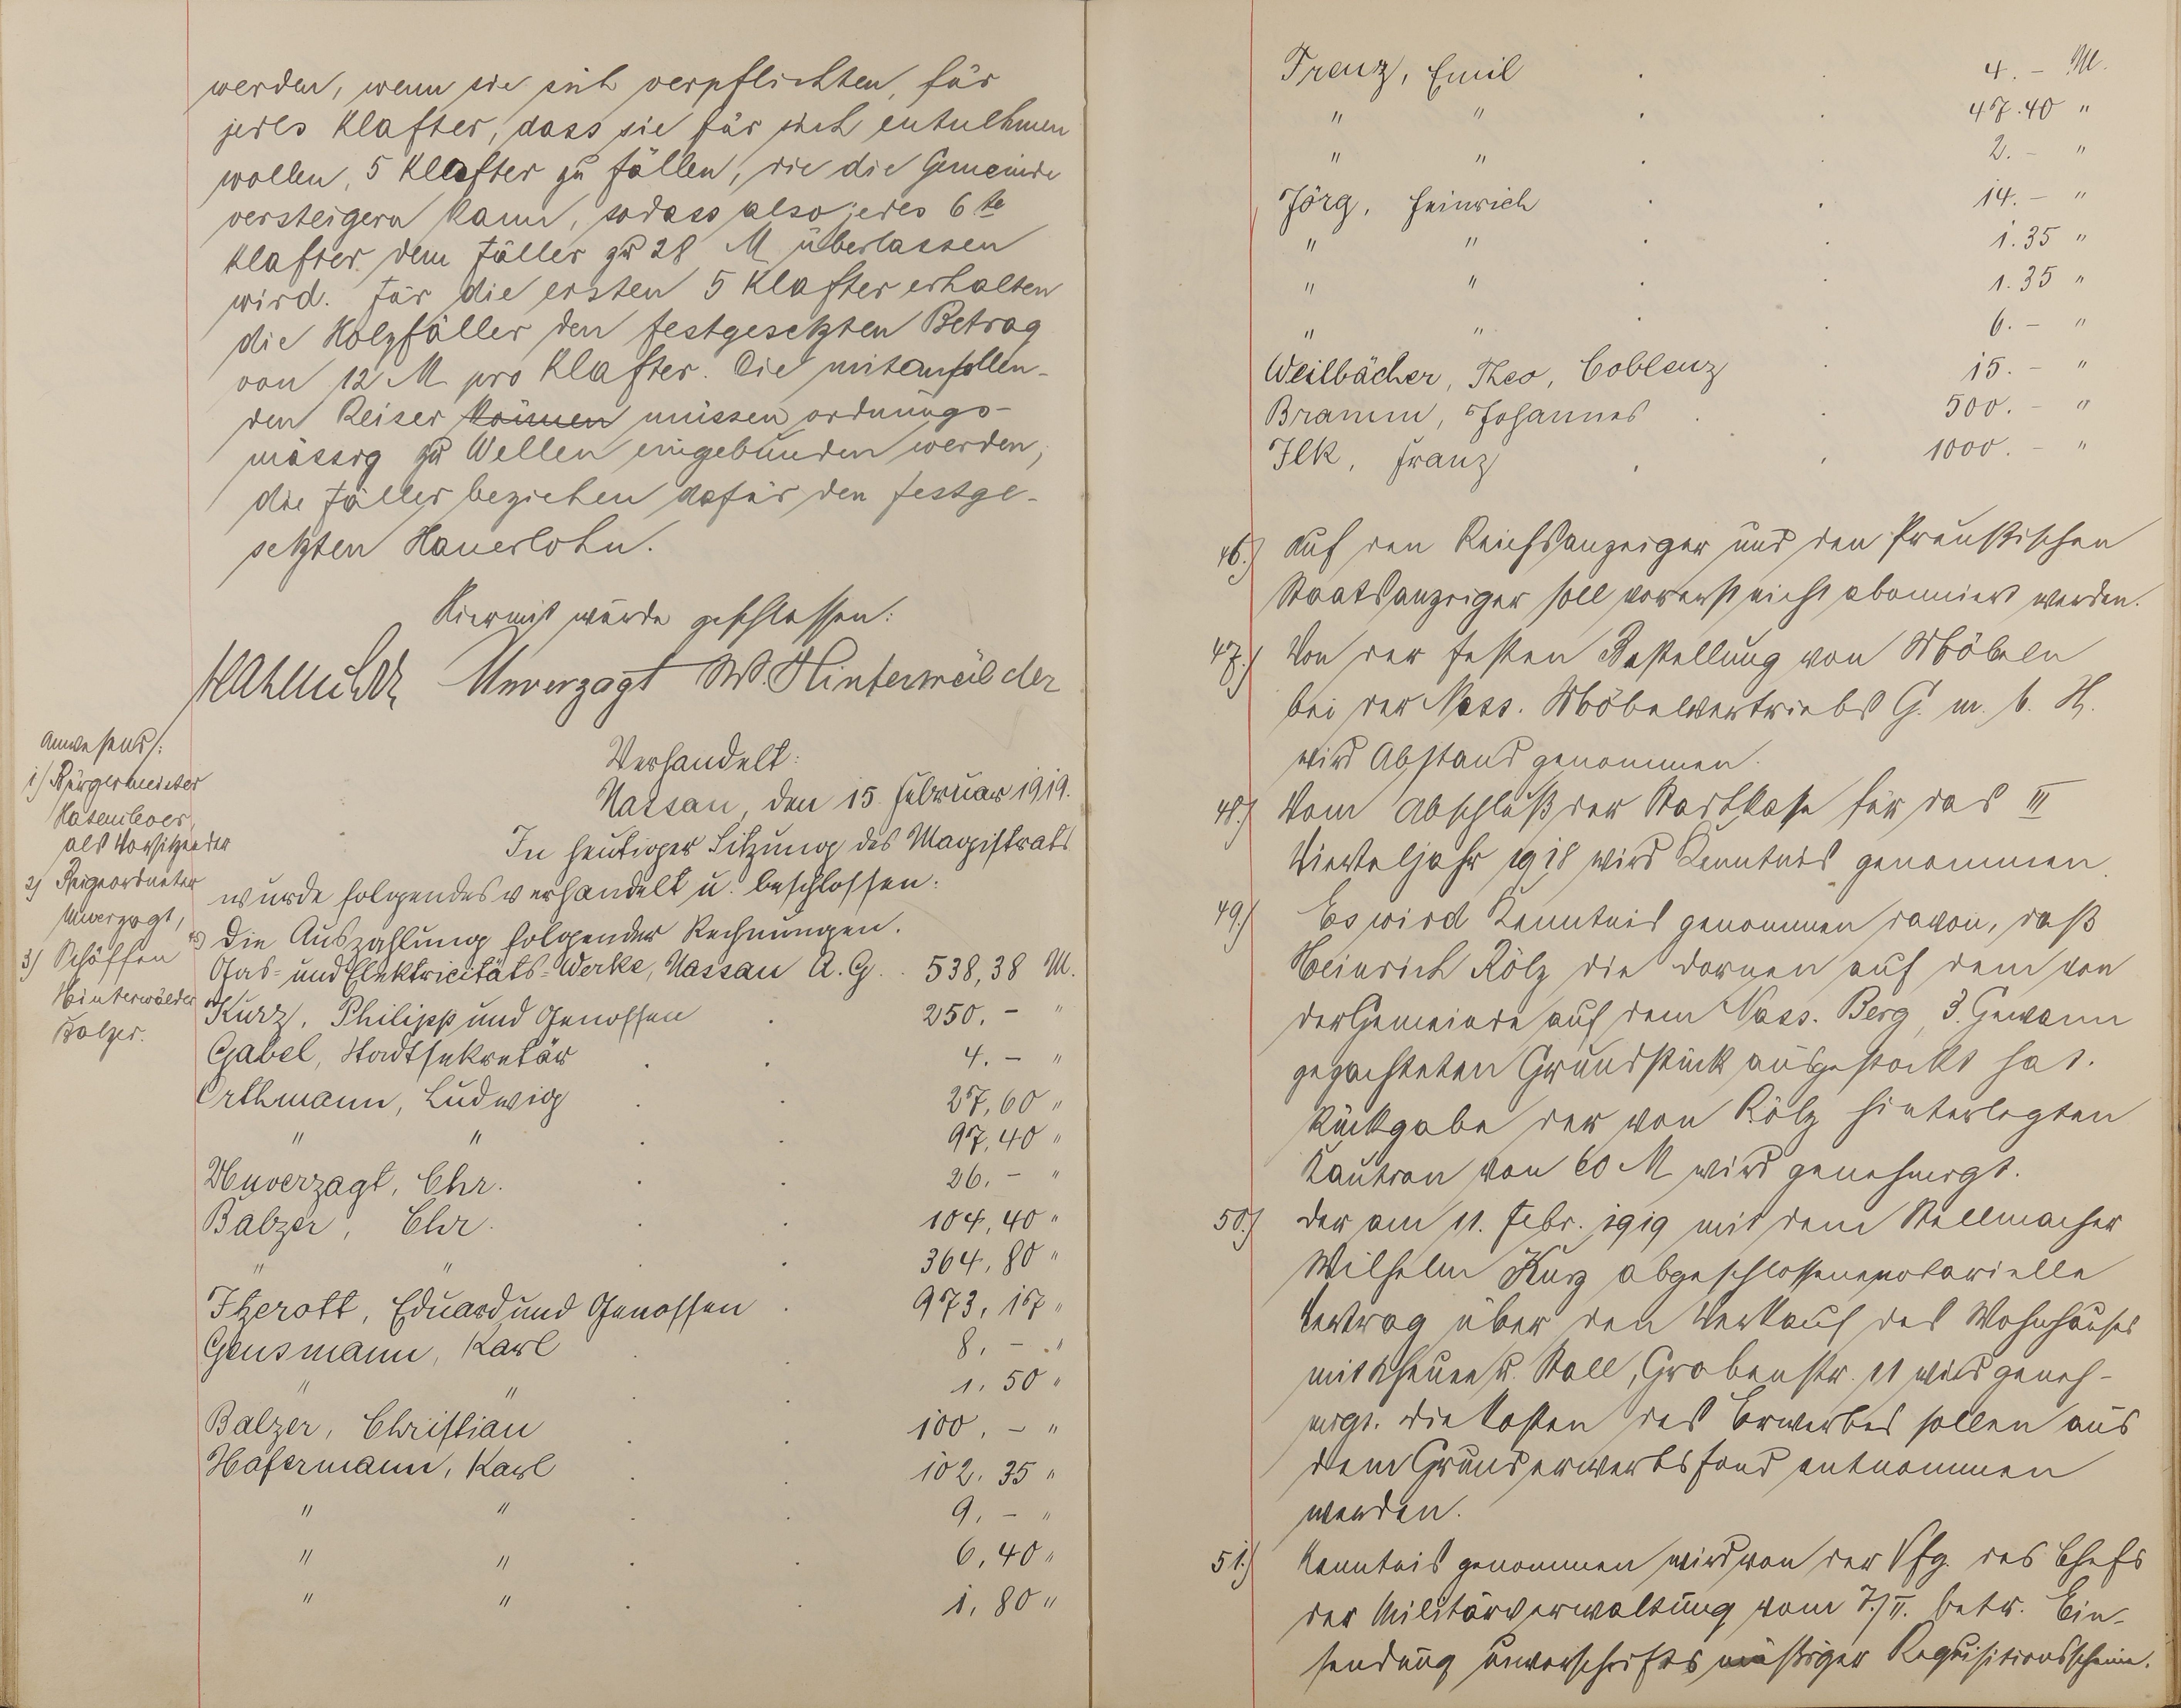 werden, wenn sie sich verpflichten, für
jedes Klafter, dass sie für sich entnehmen
wollen, 5 Klafter zu fällen, die die Gemeinde
versteigern kann, sodass also jedes 6te
Klafter dem Fäller zu 28 M überlassen
wird. Für die ersten 5 Klafter erhalten
die Holzfäller den festgesetzten Betrag
von 12 M pro Klafter. Die mitanfallen-
den Reiser können müssen ordnungs-
mässig zu Wellen eingebunden werden;
die Fäller beziehen dafür den festge-
setzten Hauerlohn.
Hiermit wurde geschlossen:
Hasenclever Unverzagt W. Hinterwälder
Anwesend:
1) Bürgermeister
Hasenclever,
als Vorsitzender
2) Beigeordneter
Unverzagt,
3) Schöffen
Hinterwälder
Balzer.
Verhandelt:
Nassau, den 15. Februar 1919.
In heutiger Sitzung des Magistrats
wurde folgendes verhandelt u. beschlossen:
45) Die Auszahlung folgender Rechnungen.
Gas- und Elektricitäts-Werke, Nassau A.G. . 538,38 M.
Kurz, Philipp und Genossen . 250. – "
Gabel, Stadtsekretär . . 4. – "
Orthmann, Ludwig . . 27,60 "
" " . . 97,40 "
Unverzagt, Chr. . . 26. – "
Balzer, Chr. . . 104,40 "
" " . . 364,80 "
Itzerott, Eduard und Genossen . 973,17 "
Geusmann, Karl . . 8. – "
" " . . 1,50 "
Balzer, Christian . . 100. – "
Hafermann, Karl . . 102,35 "
" " . . 9. – "
" " . . 6,40 "
" " . . 1,80 "
Trenz, Emil . . 4. – M.
" " . . 47.40 "
" " . . 2. – "
Jörg, Heinrich . . 14. – "
" " . . 1.35 "
" " . . 1.35 "
" " . . 6. – "
Weilbächer, Theo, Coblenz . 15. – "
Bramm, Johannes . . 500. – "
Ilk, Franz . . 1000. – "
46.) Auf den Reichsanzeiger und den Preußischen
Staatsanzeiger soll vorerst nicht abonniert werden.
47.) Von der festen Bestellung von Möbeln
bei der Nass. Möbelvertriebs G. m. b. H.
wird Abstand genommen.
48.) Vom Abschluß der Stadtkasse für das III
Vierteljahr 1918 wird Kenntnis genommen.
49.) Es wird Kenntnis genommen davon, daß
Heinrich Kölz die Dornen auf dem von
der Gemeinde auf dem Nass. Berg, 3. Gewann
gepachteten Grundstück ausgestockt hat.
Rückgabe der von Kölz hinterlegten
Kaution von 60 M wird genehmigt.
50.) Der am 11. Febr. 1919 mit dem Stellmacher
Wilhelm Kurz abgeschlossene notarielle
Vertrag über den Verkauf des Wohnhauses
mit Scheune u. Stall, Grabenstr. 11 wird geneh-
migt. Die Kosten des Erwerbes sollen aus
dem Grunderwerbsfond entnommen
werden.
51.) Kenntnis genommen wird von der Vfg. des Chefs
der Militärverwaltung vom 7./II. betr. Ein-
sendung unvorschriftsmäßiger Requisitionsscheine.